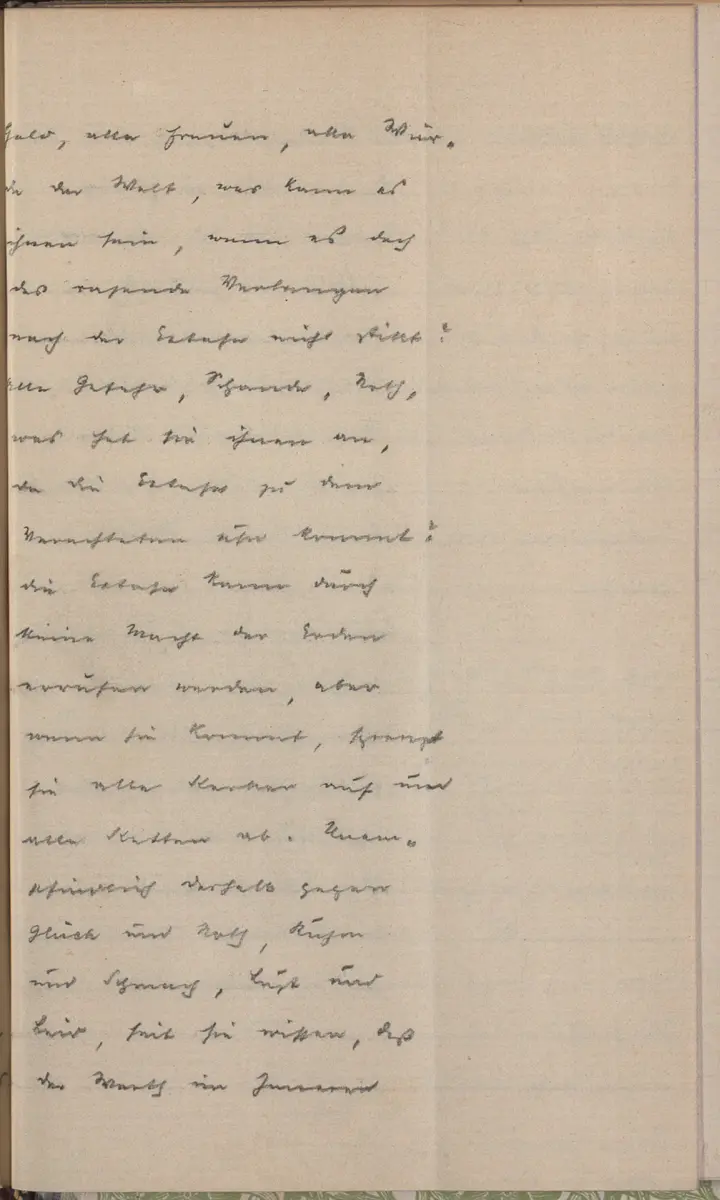 Geld, alle Frauen, alle Wür-
de der Welt, was kann es
ihnen sein, wenn es doch
das rasende Verlangen
nach der Extase nicht stillt?
Alle Gefahr, Schande, Noth,
was hat sie ihnen an,
da die Extase zu dem
Verachteten kommt?
die Extase kann durch
keine Macht der Erden
errufen werden, aber
wenn sie kommt, sprengt
sie alle Kerker auf und
alle Ketten ab. Unem-
pfindlich deshalb gegen
Glück und Noth, Ruhm
und Schmach, Lust und
Leid, seit sie wissen, daß
der Werth im Inneren